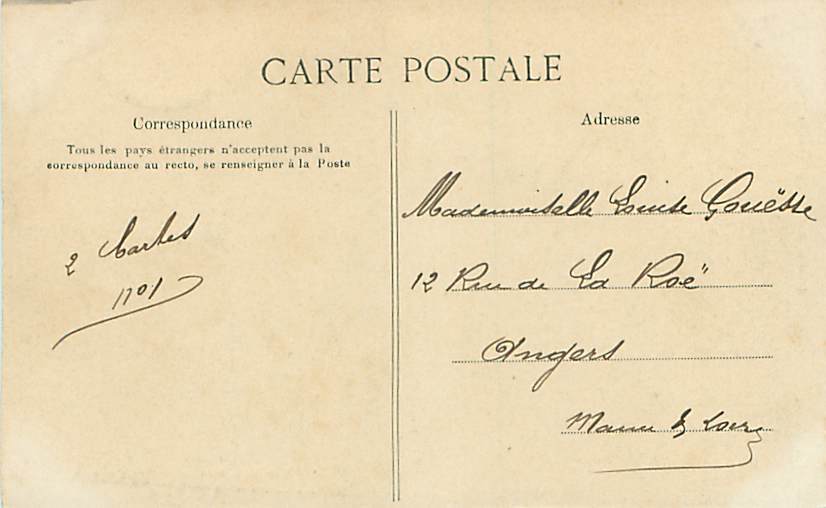 CARTE POSTALE
Correspondance
Tous les pays étrangers n'acceptent pas la
correspondance au recto, se renseigner à la Poste
2 Cartes
N° 1
Adresse
Mademoiselle Louise Gouësse
12 Rue de La Roë
Angers
Maine & Loire